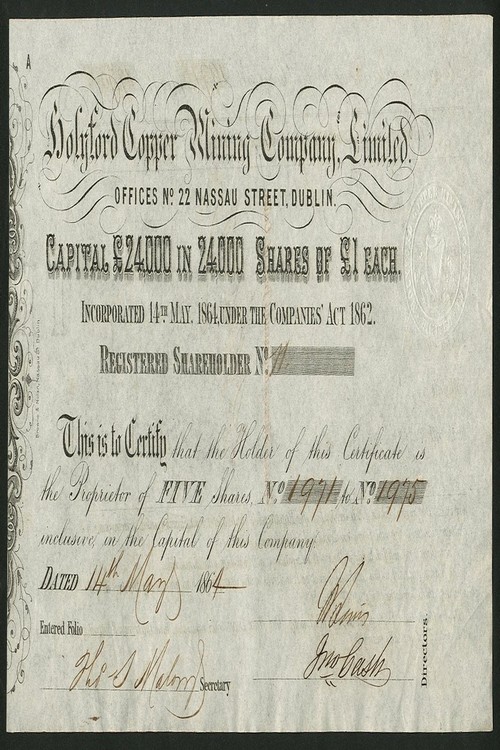 A
Holyford Copper Mining Company, Limited.
OFFICES No. 22 NASSAU STREET, DUBLIN.
CAPITAL £24,000 IN 24,000 SHARES OF £1 EACH.
INCORPORATED 14TH MAY, 1864, UNDER THE COMPANIES' ACT 1862.
REGISTERED SHAREHOLDER No.
This is to Certify that the Holder of this Certificate is
the Proprietor of FIVE Shares, No. 1971 to No. 1975
inclusive, in the Capital of this Company.
DATED 14th May 1864
Entered Folio
Jno Cash
Secretary
Directors.